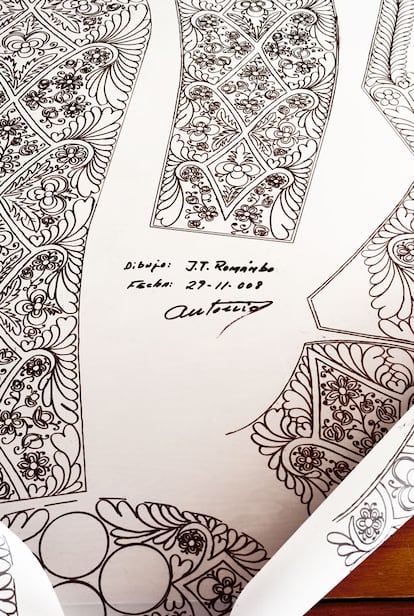 Dibujo: J.T. Románbo
Fecha: 29-11-008
Antonio